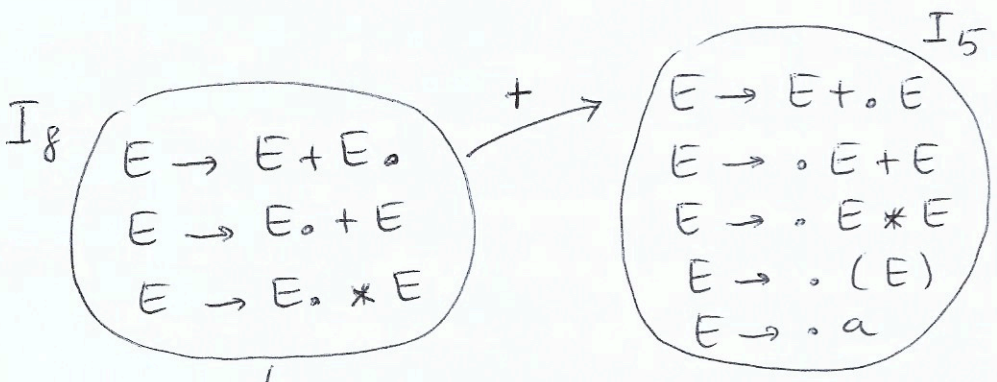 I8
E → E + E .
E → E . + E
E → E . * E
+
I5
E → E + . E
E → . E + E
E → . E * E
E → . ( E )
E → . a